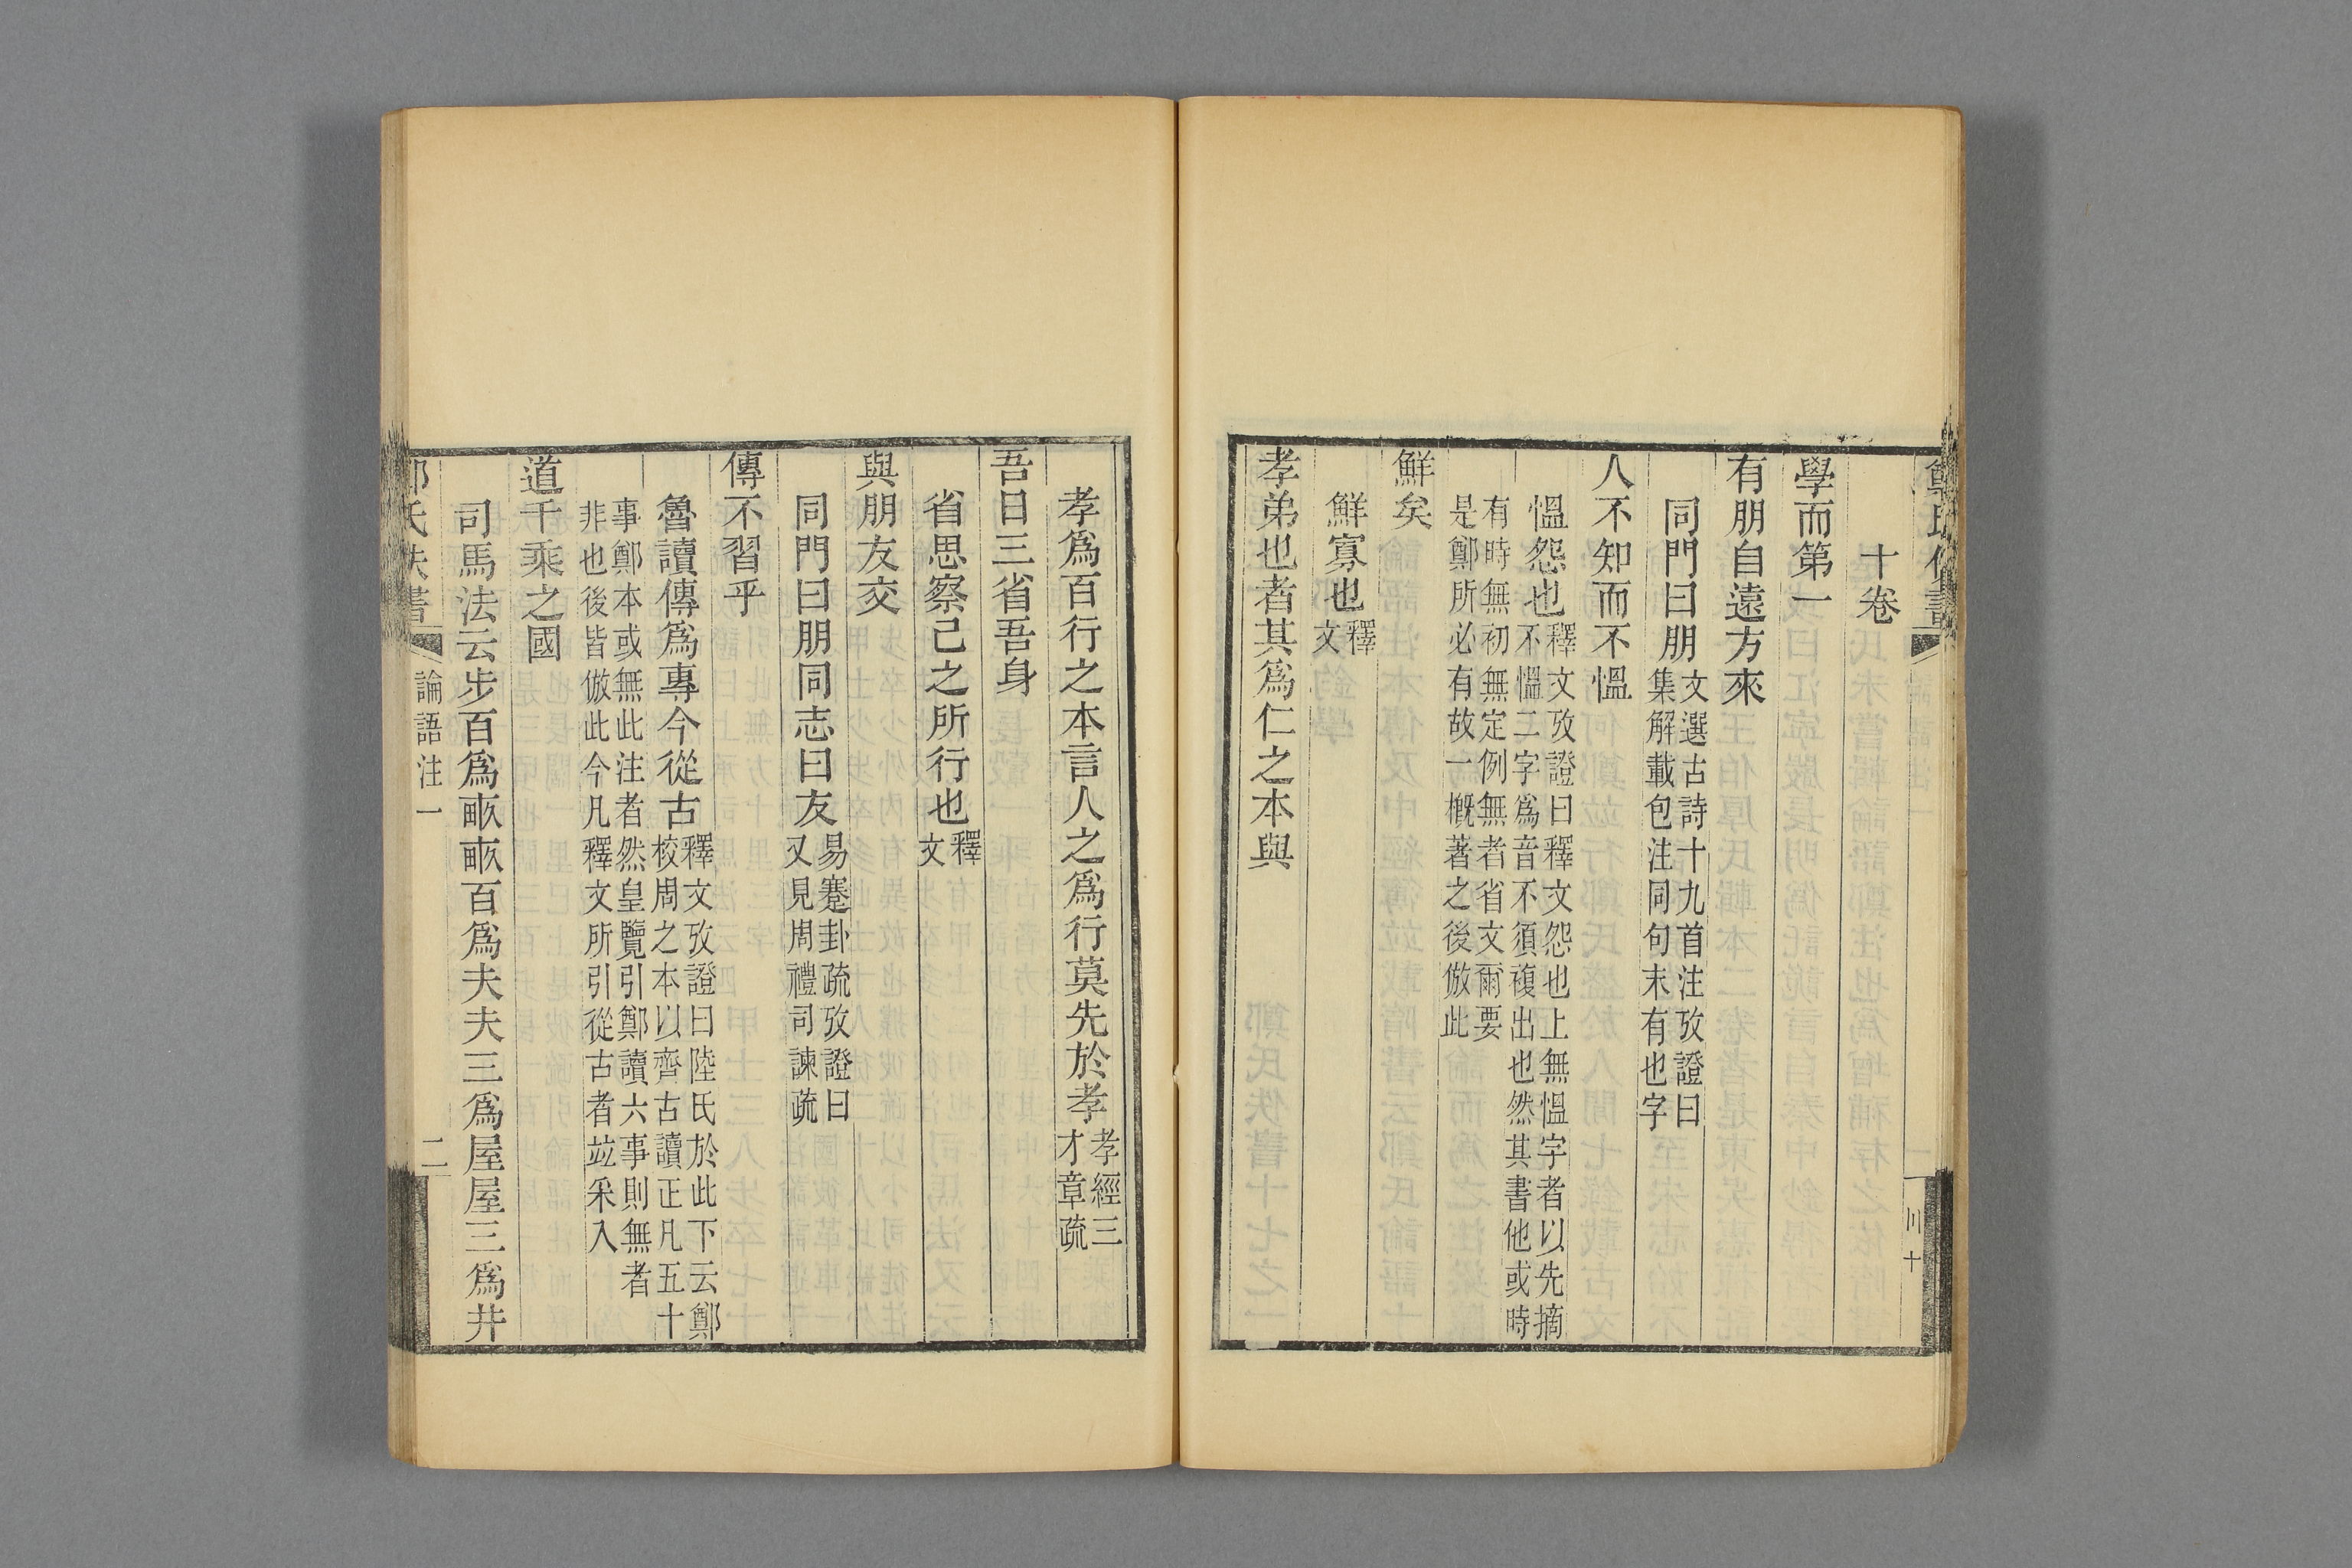 十卷
學而第一
有朋自遠方來
同門曰朋文選古詩十九首注攷證曰集解載包注同句末有也字
人不知而不慍
慍怨也釋文攷證曰釋文怨也上無慍字者以先摘不慍二字為音不須複出也然其書他或時
有時無初無定例無者省文爾要是鄭所必有故一概著之後倣此
鮮矣
鮮寡也釋文
孝弟也者其爲仁之本與
孝爲百行之本言人之爲行莫先於孝孝經三才章疏
吾日三省吾身
省思察己之所行也釋文
與朋友交
同門曰朋同志曰友易蹇卦疏攷證曰又見周禮司諫疏
傳不習乎
魯讀傳爲專今從古釋文攷證曰陸氏於此下云鄭校周之本以齊古讀正凡五十
事鄭本或無此注者然皇覽引鄭讀六事則無者非也後皆倣此今凡釋文所引從古者竝采入
道千乘之國
司馬法云步百爲畞畞百爲夫夫三爲屋屋三爲井
論語注一
二